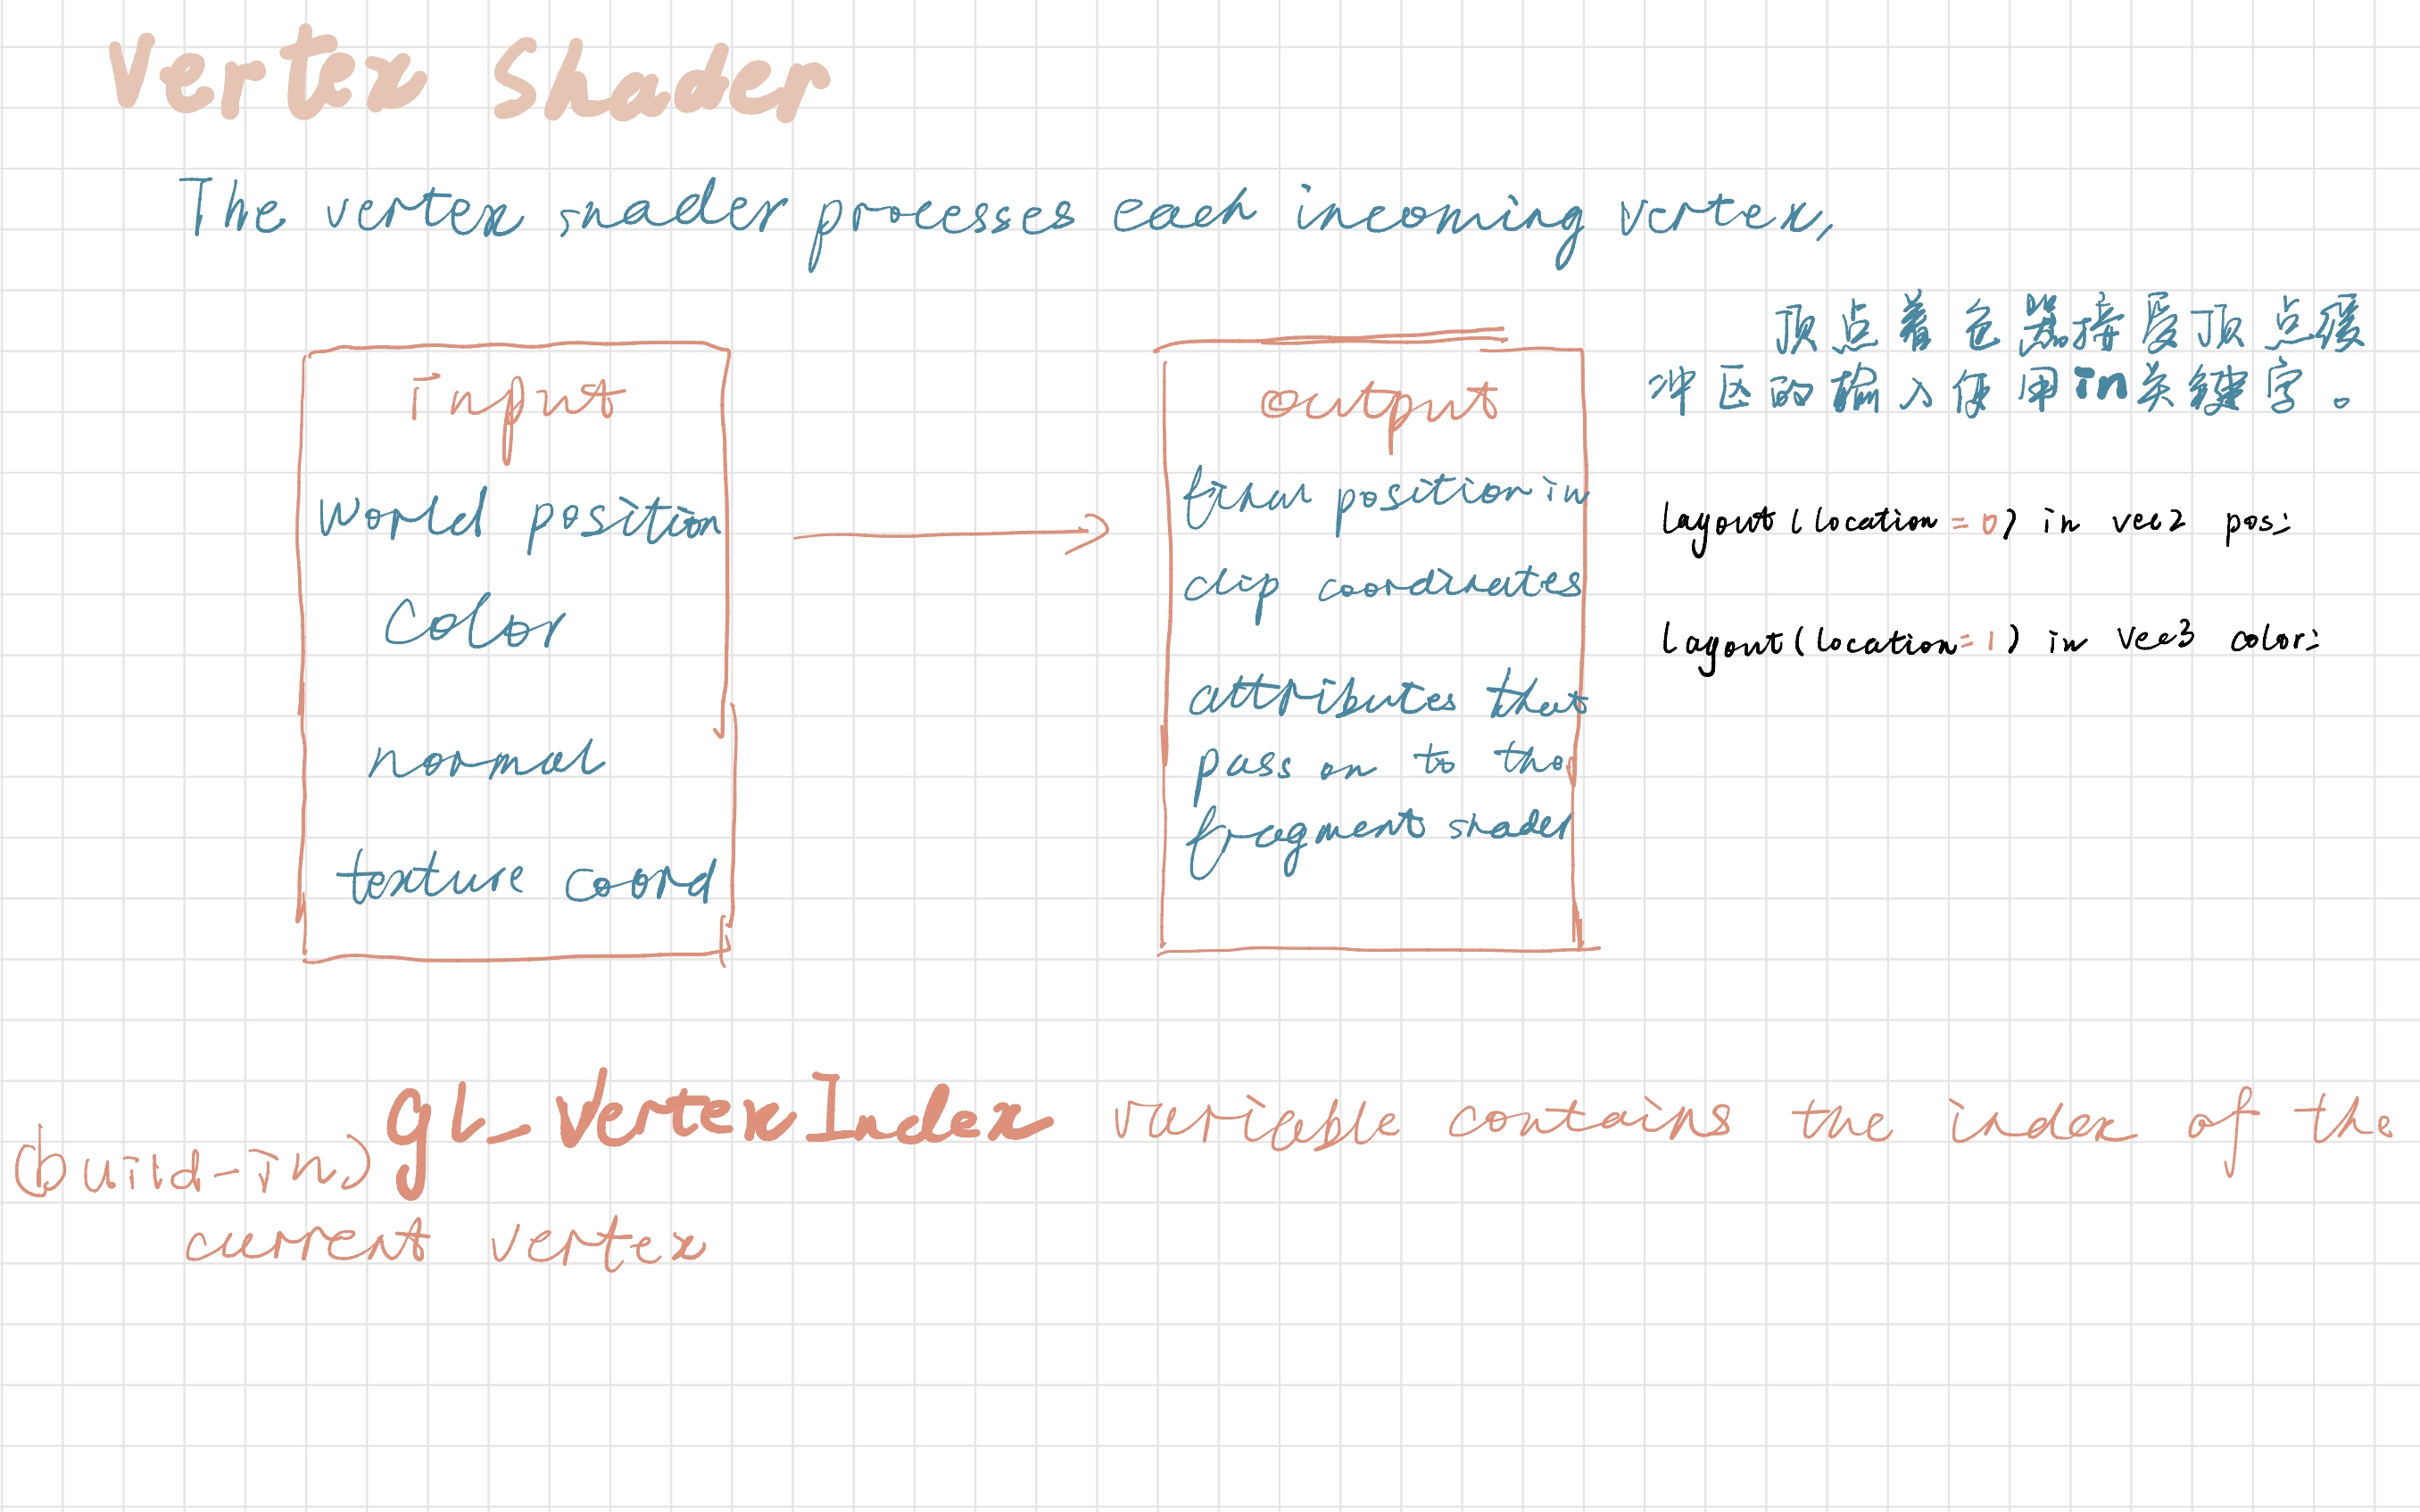 Vertex Shader
The vertex shader processes each incoming vertex,
顶点着色器接受顶点缓
冲区的输入使用in关键字。
input
world position
color
normal
texture coord
output
final position in
clip coordinates
attributes that
pass on to the
fragment shader
layout(location = 0) in vec2 pos;
layout(location = 1) in vec3 color;
(build-in) gl_VertexIndex variable contains the index of the
current vertex